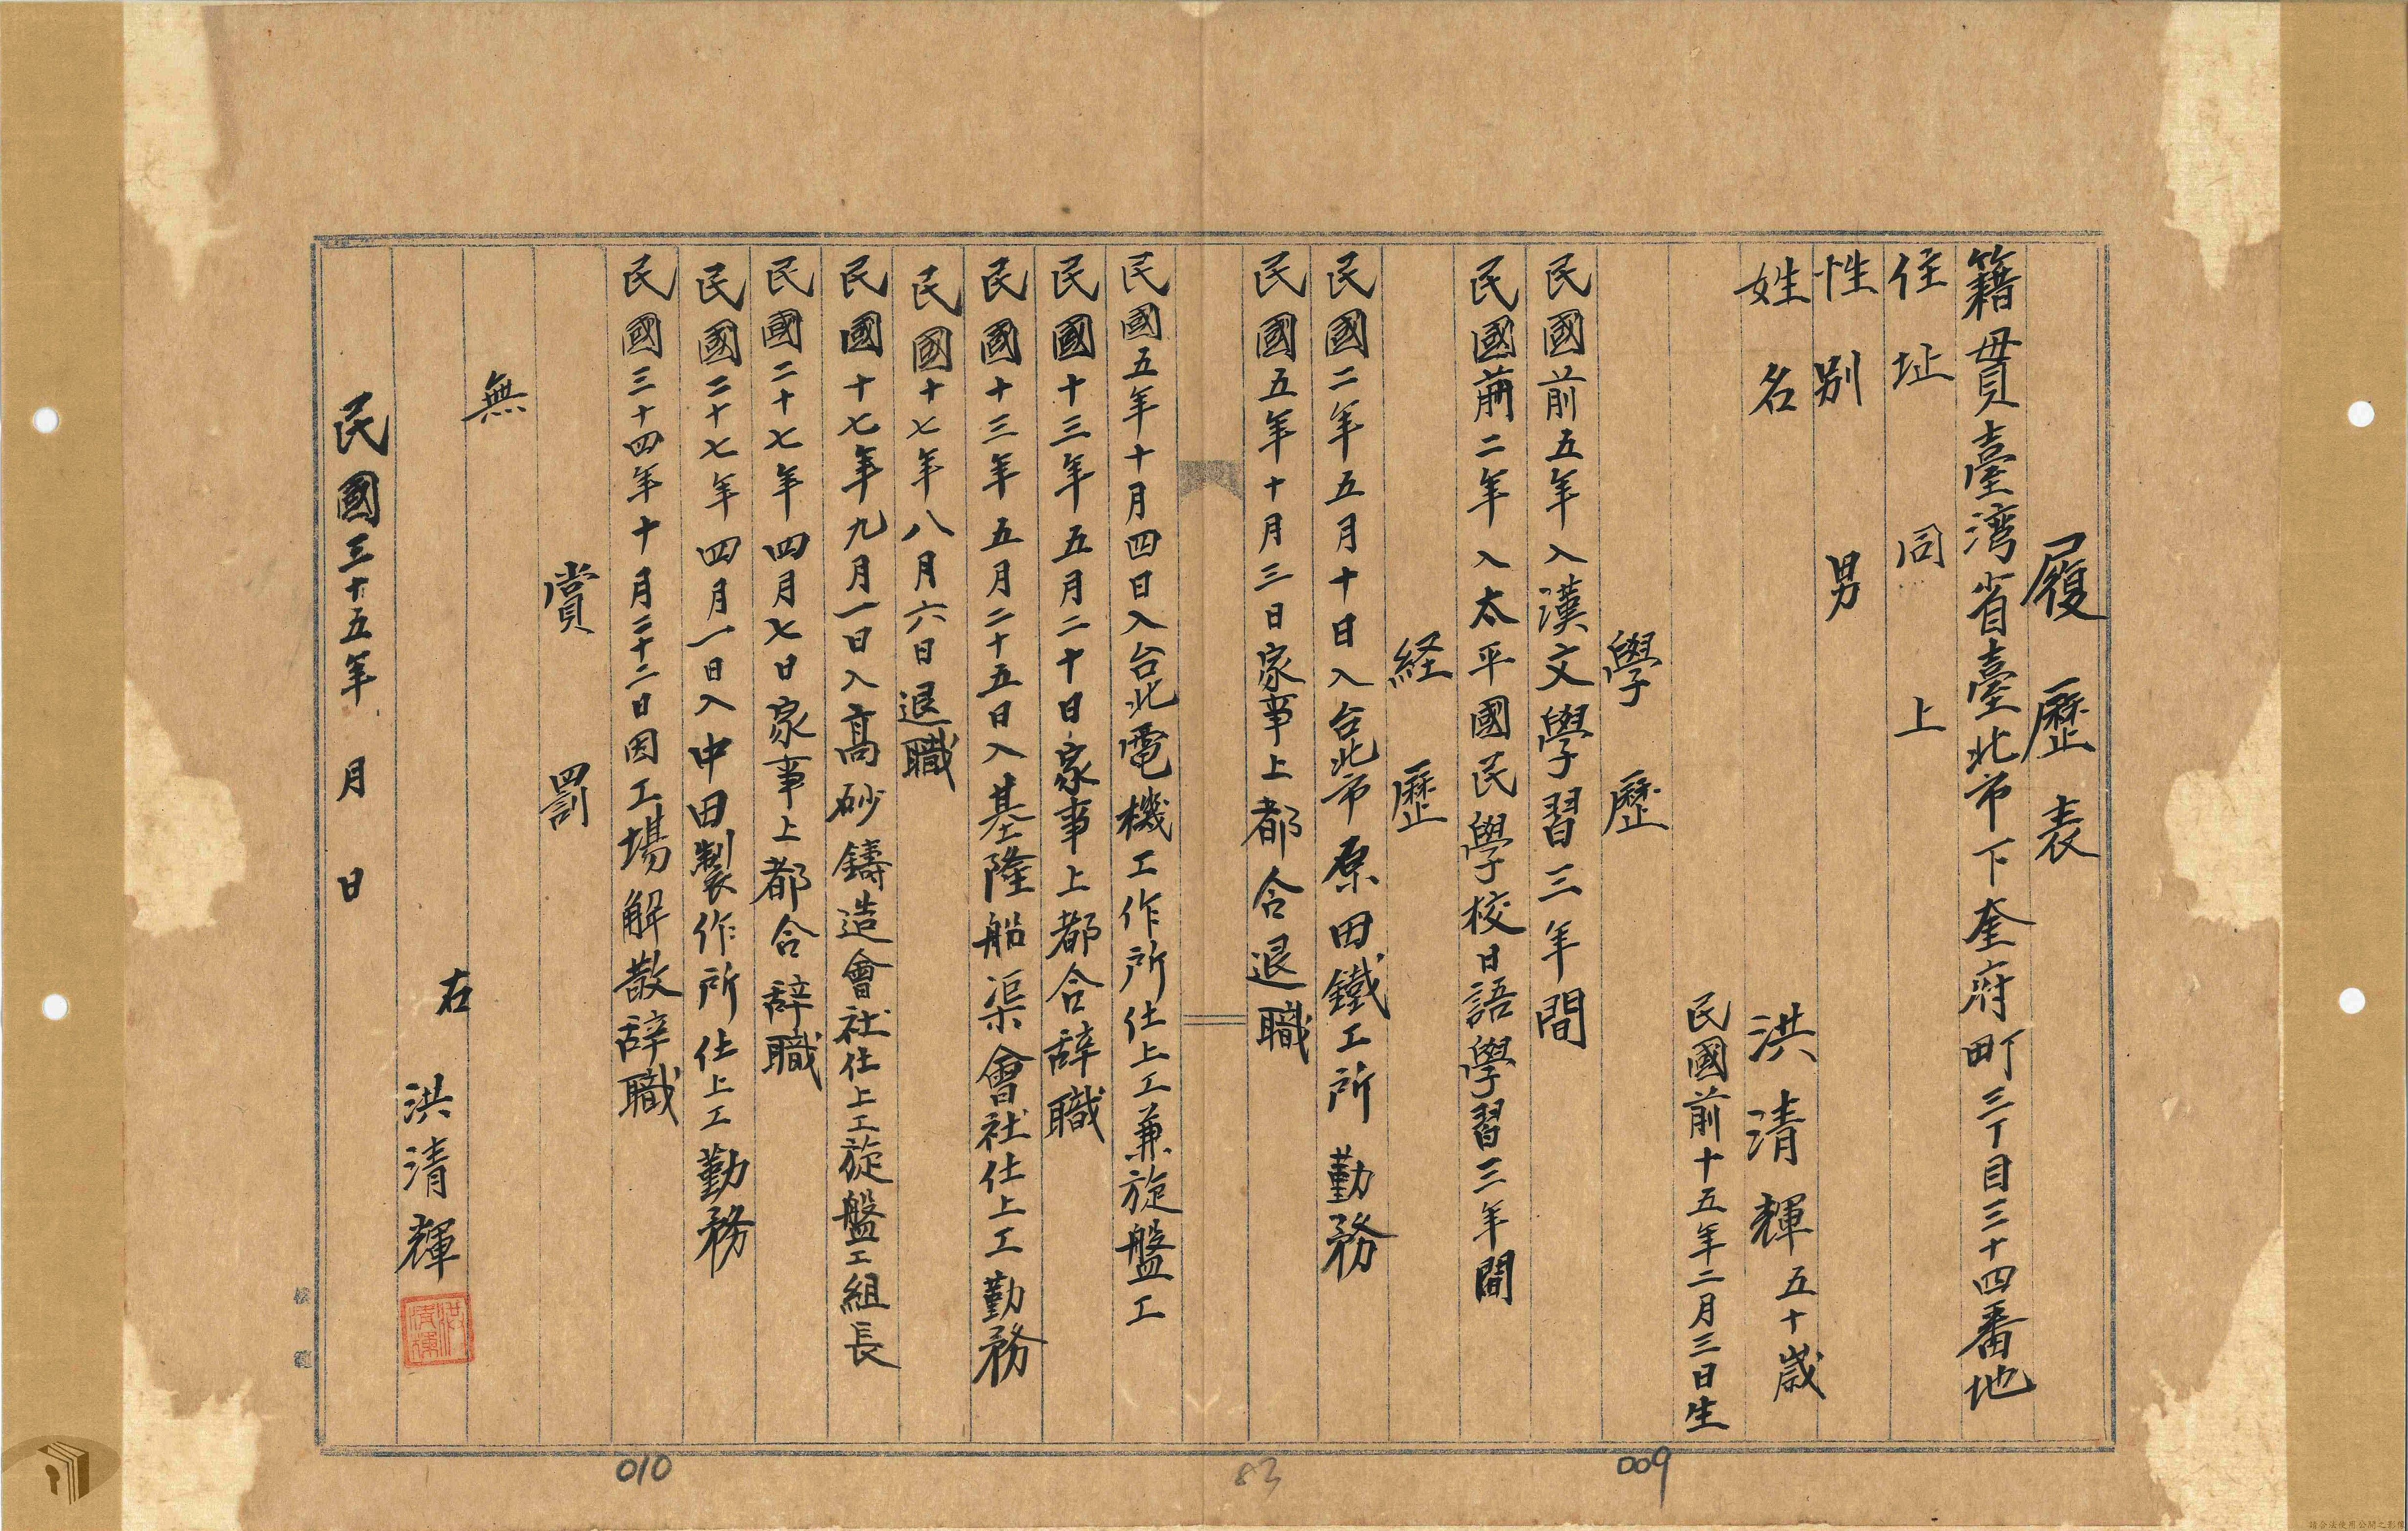 履歷表
籍貫臺湾省臺北市下奎府町三丁目三十四番地
住址 同上
性別 男
姓名 洪清輝 五十歳
民國前十五年二月三日生
學歷
民國前五年入漢文學習三年間
民國前二年入太平國民學校日語學習三年間
経歷
民國二年五月十日入台北市原田鐵工所勤務
民國五年十月三日家事上都合退職
民國五年十月四日入台北電機工作所仕上工兼旋盤工
民國十三年五月二十日家事上都合辞職
民國十三年五月二十五日入基隆船渠會社仕上工勤務
民國十七年八月六日退職
民國十七年九月一日入高砂鑄造會社仕上工旋盤工組長
民國二十七年四月七日家事上都合辞職
民國二十七年四月一日入中田製作所仕上工勤務
民國三十四年十月二十二日因工場解散辞職
賞罰
無
右 洪清輝
洪清輝
民國三十五年 月 日
009
83
010